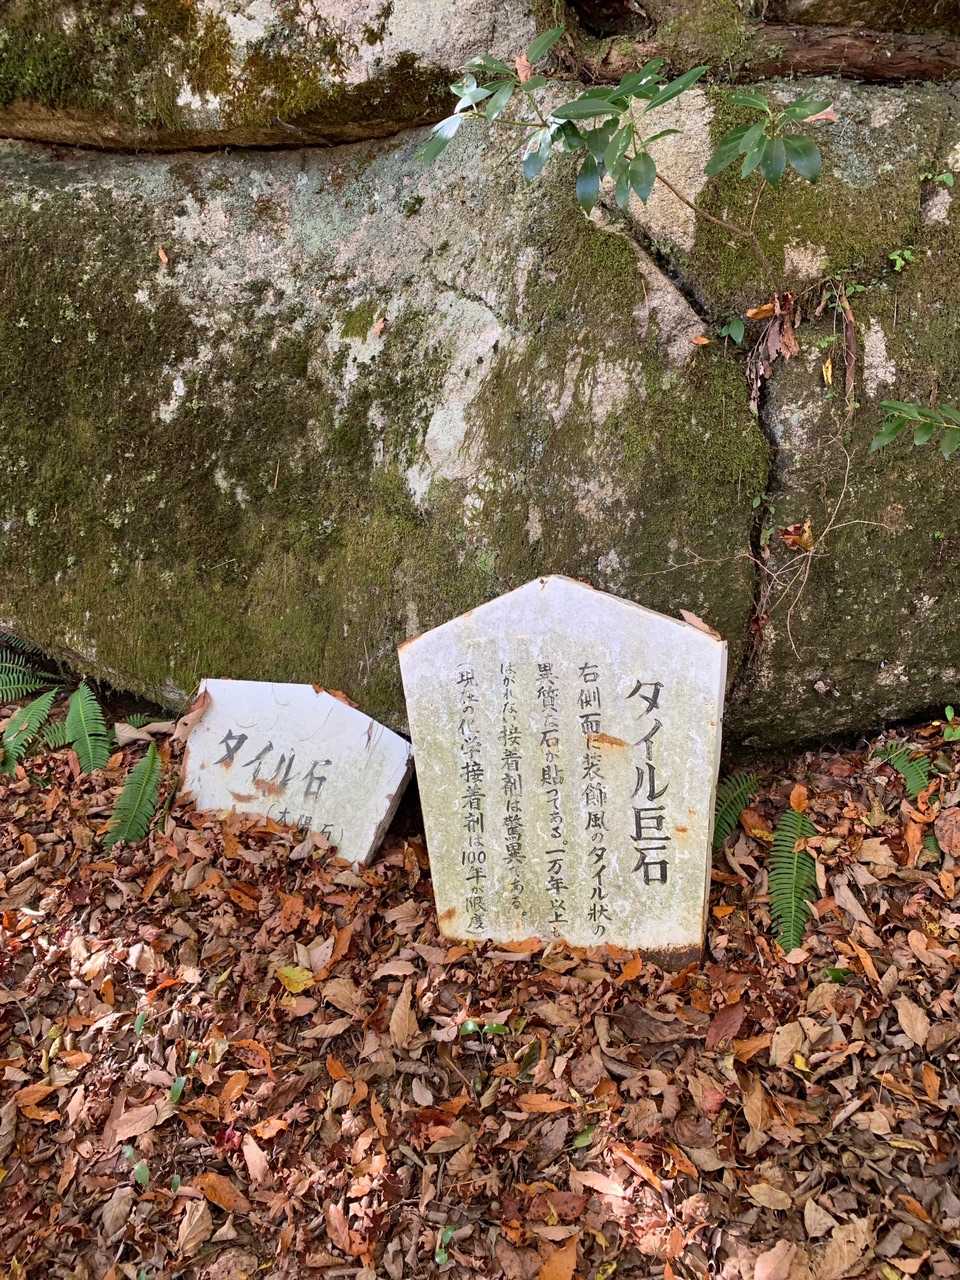 タイル巨石
右側面に装飾風のタイル状の
異質な石が貼ってある。一万年以上も
はがれない接着剤は驚異である。
(現在の化学接着剤は100年が限度
タイル石
(太陽石)